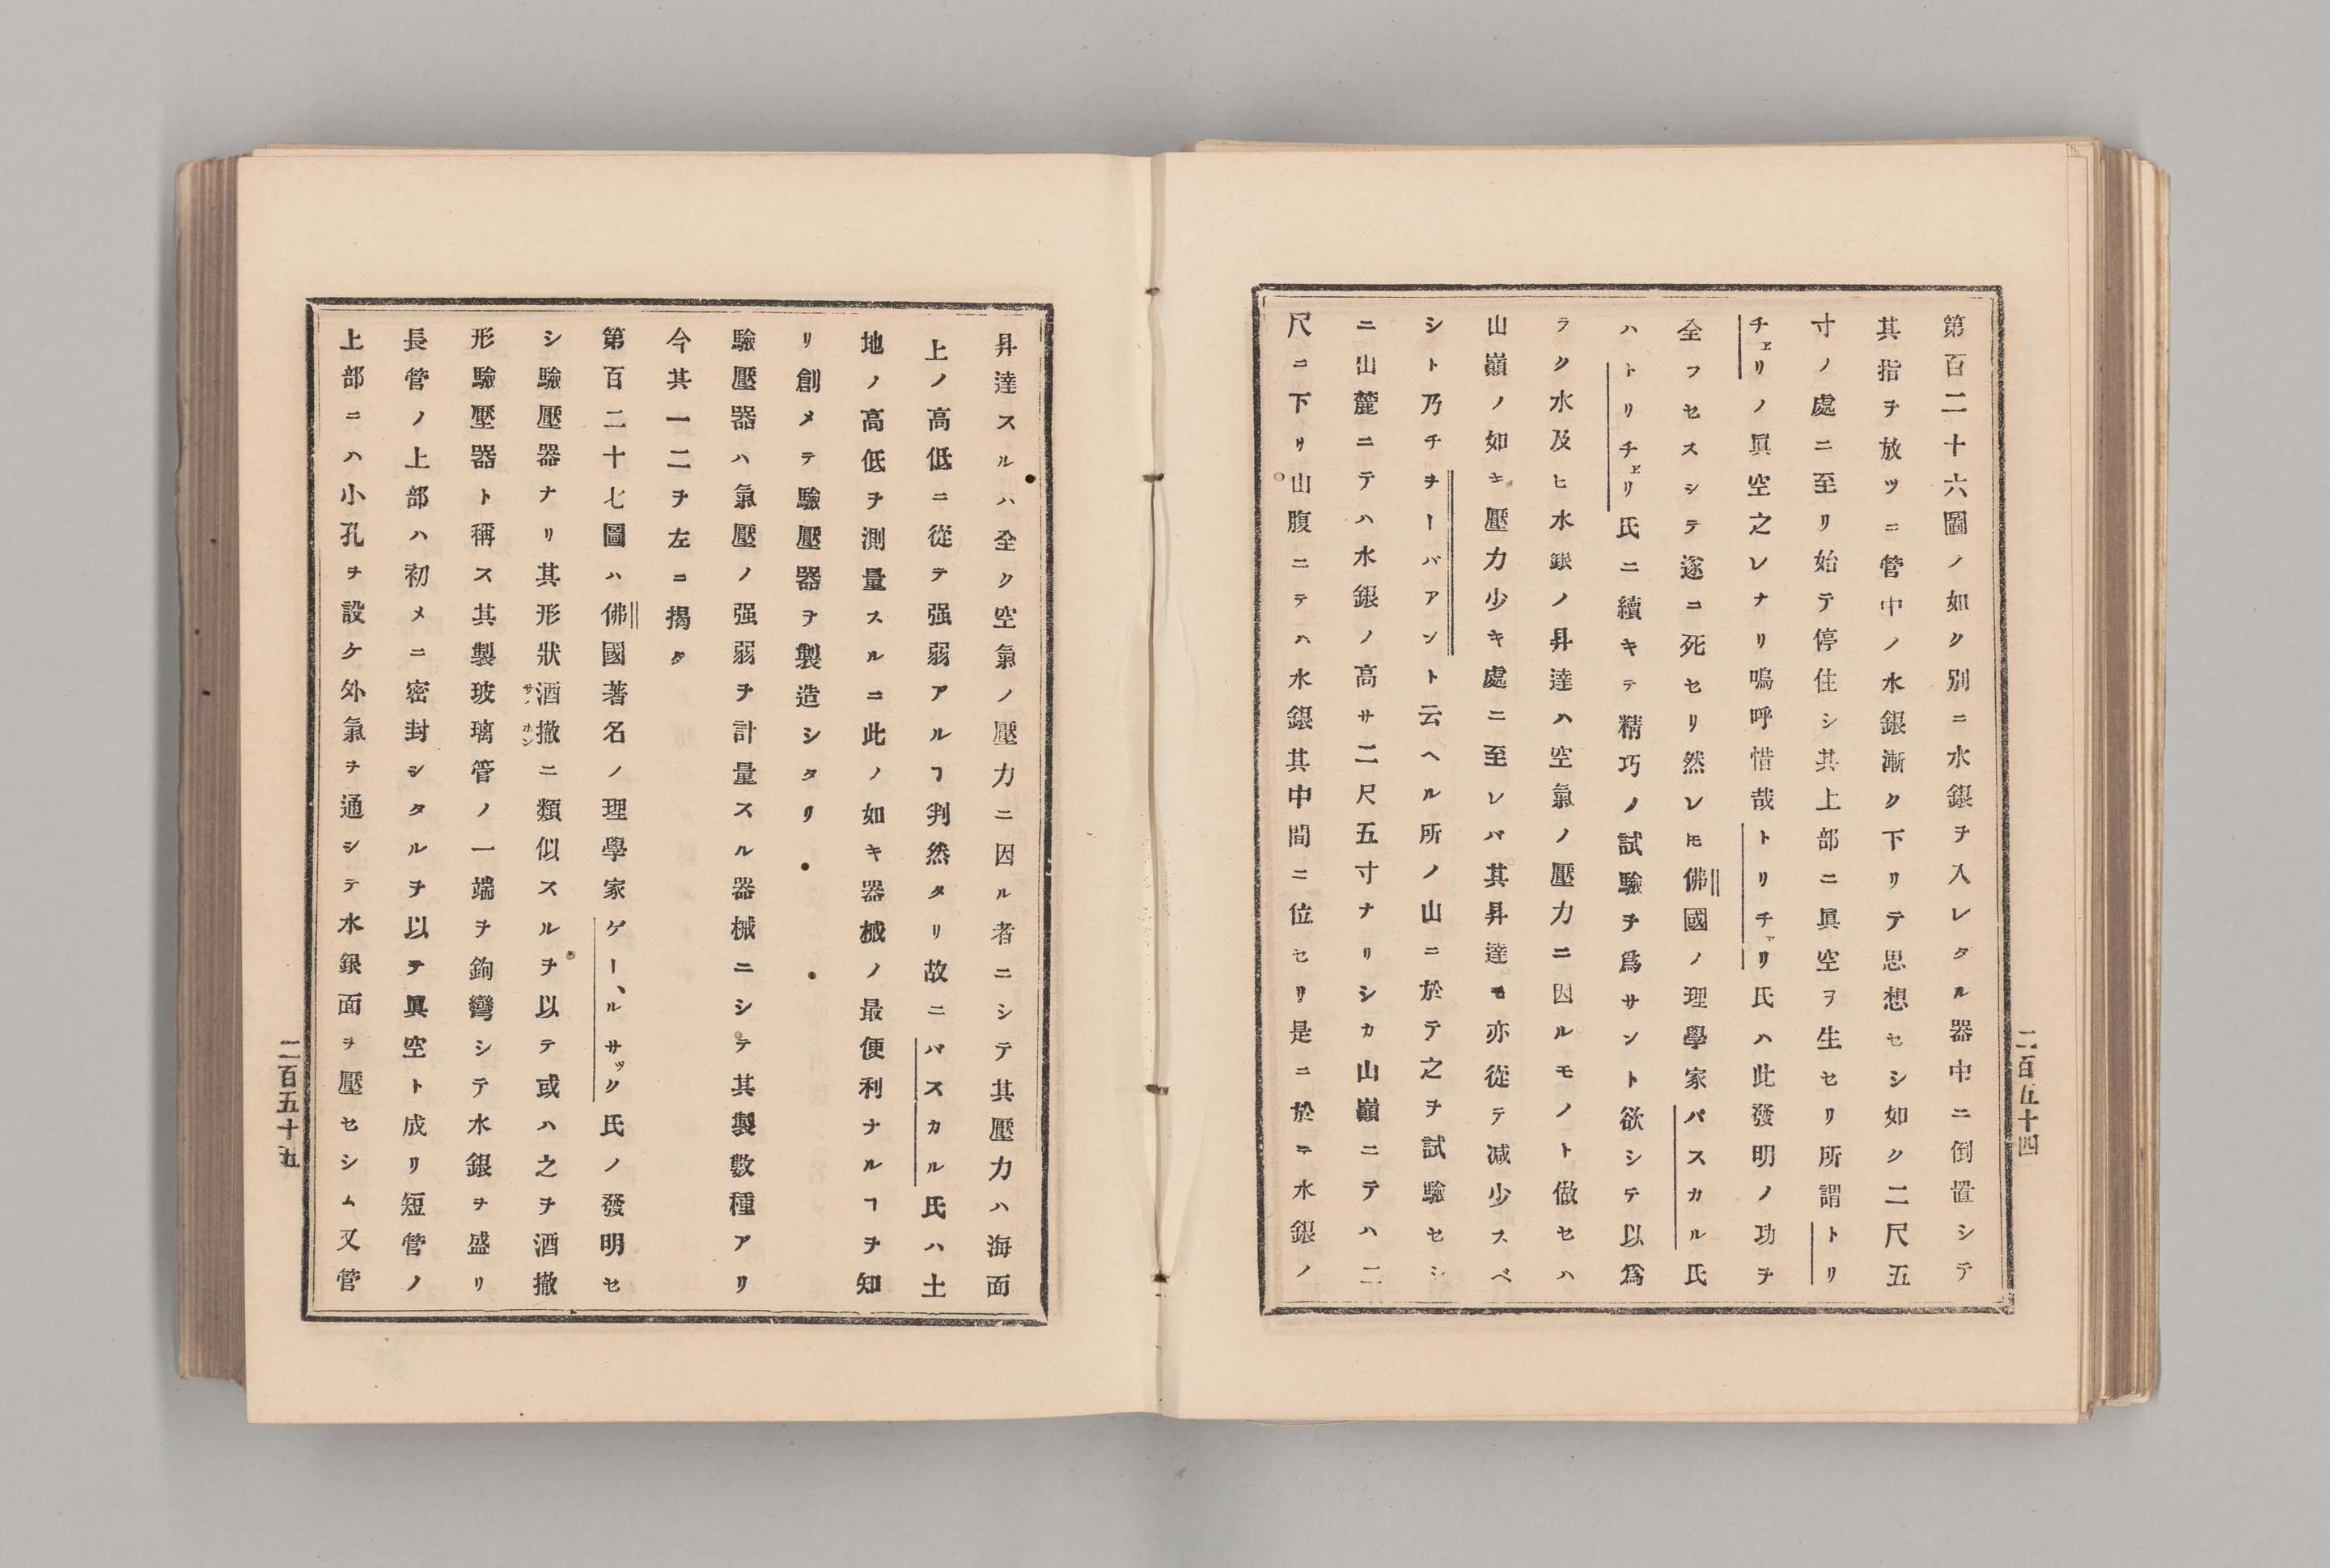 第百二十六圖ノ如ク別ニ水銀ヲ入レタル器中ニ倒置シテ
其指ヲ放ツニ管中ノ水銀漸ク下リテ思想セシ如ク二尺五
寸ノ處ニ至リ始テ停住シ其上部ニ眞空ヲ生セリ所謂トリ
チェリノ眞空之レナリ嗚呼惜哉トリチャリ氏ハ此發明ノ功ヲ
全フセスシテ遂ニ死セリ然レ𪜈佛國ノ理學家パスカル氏
ハトリチェリ氏ニ續キテ精巧ノ試驗ヲ爲サント欲シテ以爲
ラク水及ヒ水銀ノ昇達ハ空氣ノ壓力ニ因ルモノト做セハ
山巓ノ如キ壓力少キ處ニ至レバ其昇達モ亦從テ减少スベ
シト乃チヲーバアント云ヘル所ノ山ニ於テ之ヲ試驗セシ
ニ山麓ニテハ水銀ノ高サ二尺五寸ナリシカ山巓ニテハ二
尺ニ下リ山腹ニテハ水銀其中間ニ位セリ是ニ於テ水銀ノ
二百五十四
昇達スルハ全ク空氣ノ壓力ニ因ル者ニシテ其壓力ハ海面
上ノ高低ニ從テ强弱アルヿ判然タリ故ニパスカル氏ハ土
地ノ高低ヲ測量スルニ此ノ如キ器械ノ最便利ナルヿヲ知
リ創メテ驗壓器ヲ製造シタリ
驗壓器ハ氣壓ノ强弱ヲ計量スル器械ニシテ其製數種アリ
今其一二ヲ左ニ揭ク
第百二十七圖ハ佛國著名ノ理學家ゲー、ルサック氏ノ發明セ
シ驗壓器ナリ其形狀酒撤サイホンニ類似スルヲ以テ或ハ之ヲ酒撤
形驗壓器ト稱ス其製玻璃管ノ一端ヲ鉤彎シテ水銀ヲ盛リ
長管ノ上部ハ初メニ密封シタルヲ以テ眞空ト成リ短管ノ
上部ニハ小孔ヲ設ケ外氣ヲ通シテ水銀面ヲ壓セシム又管
二百五十五